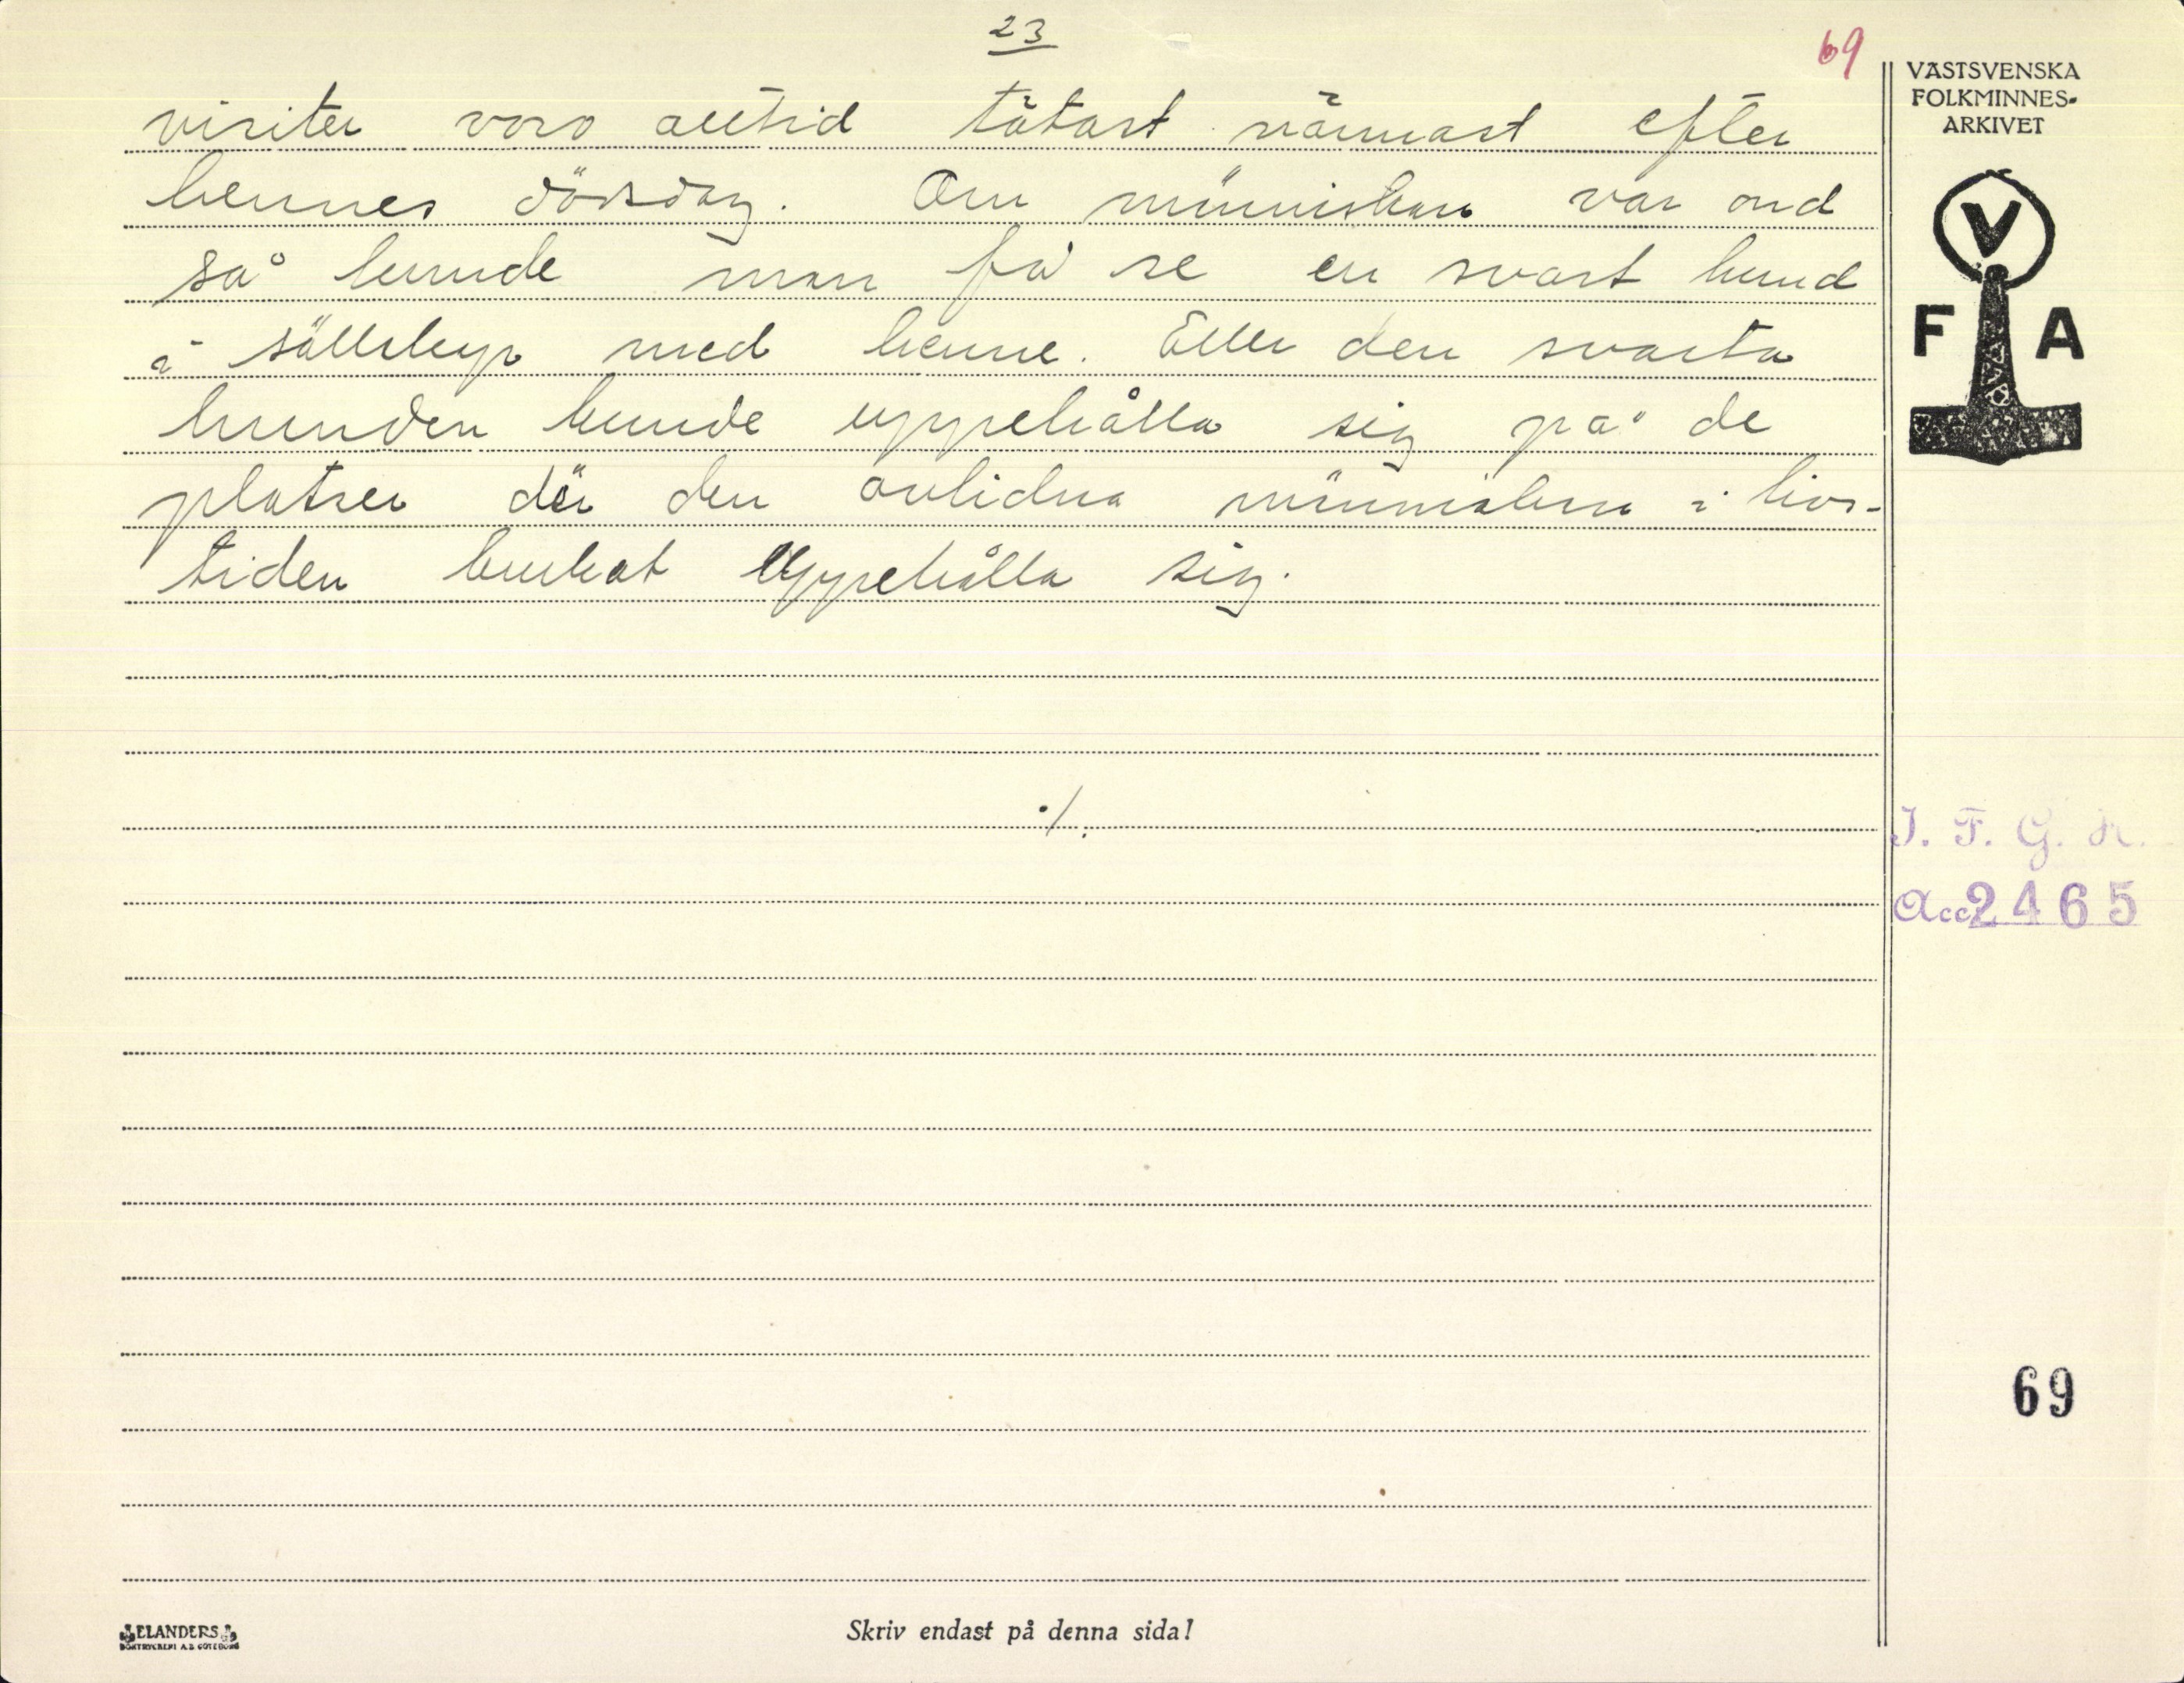 23
69
visiter voro alltid tätast närmast efter
hennes dödsdag. Om människan var ond
så kunde man få se en svart hund
i sällskap med henne. Eller den svarta
hunden kunde uppehålla sig på de
platser där den avlidna människan i livs-
tiden brukat uppehålla sig.
./.
VÄSTSVENSKA
FOLKMINNES-
ARKIVET
V
F A
I. F. G. H.
Acc 2465
69
ELANDERS
BOKTRYCKERI A.B. GÖTEBORG
Skriv endast på denna sida!